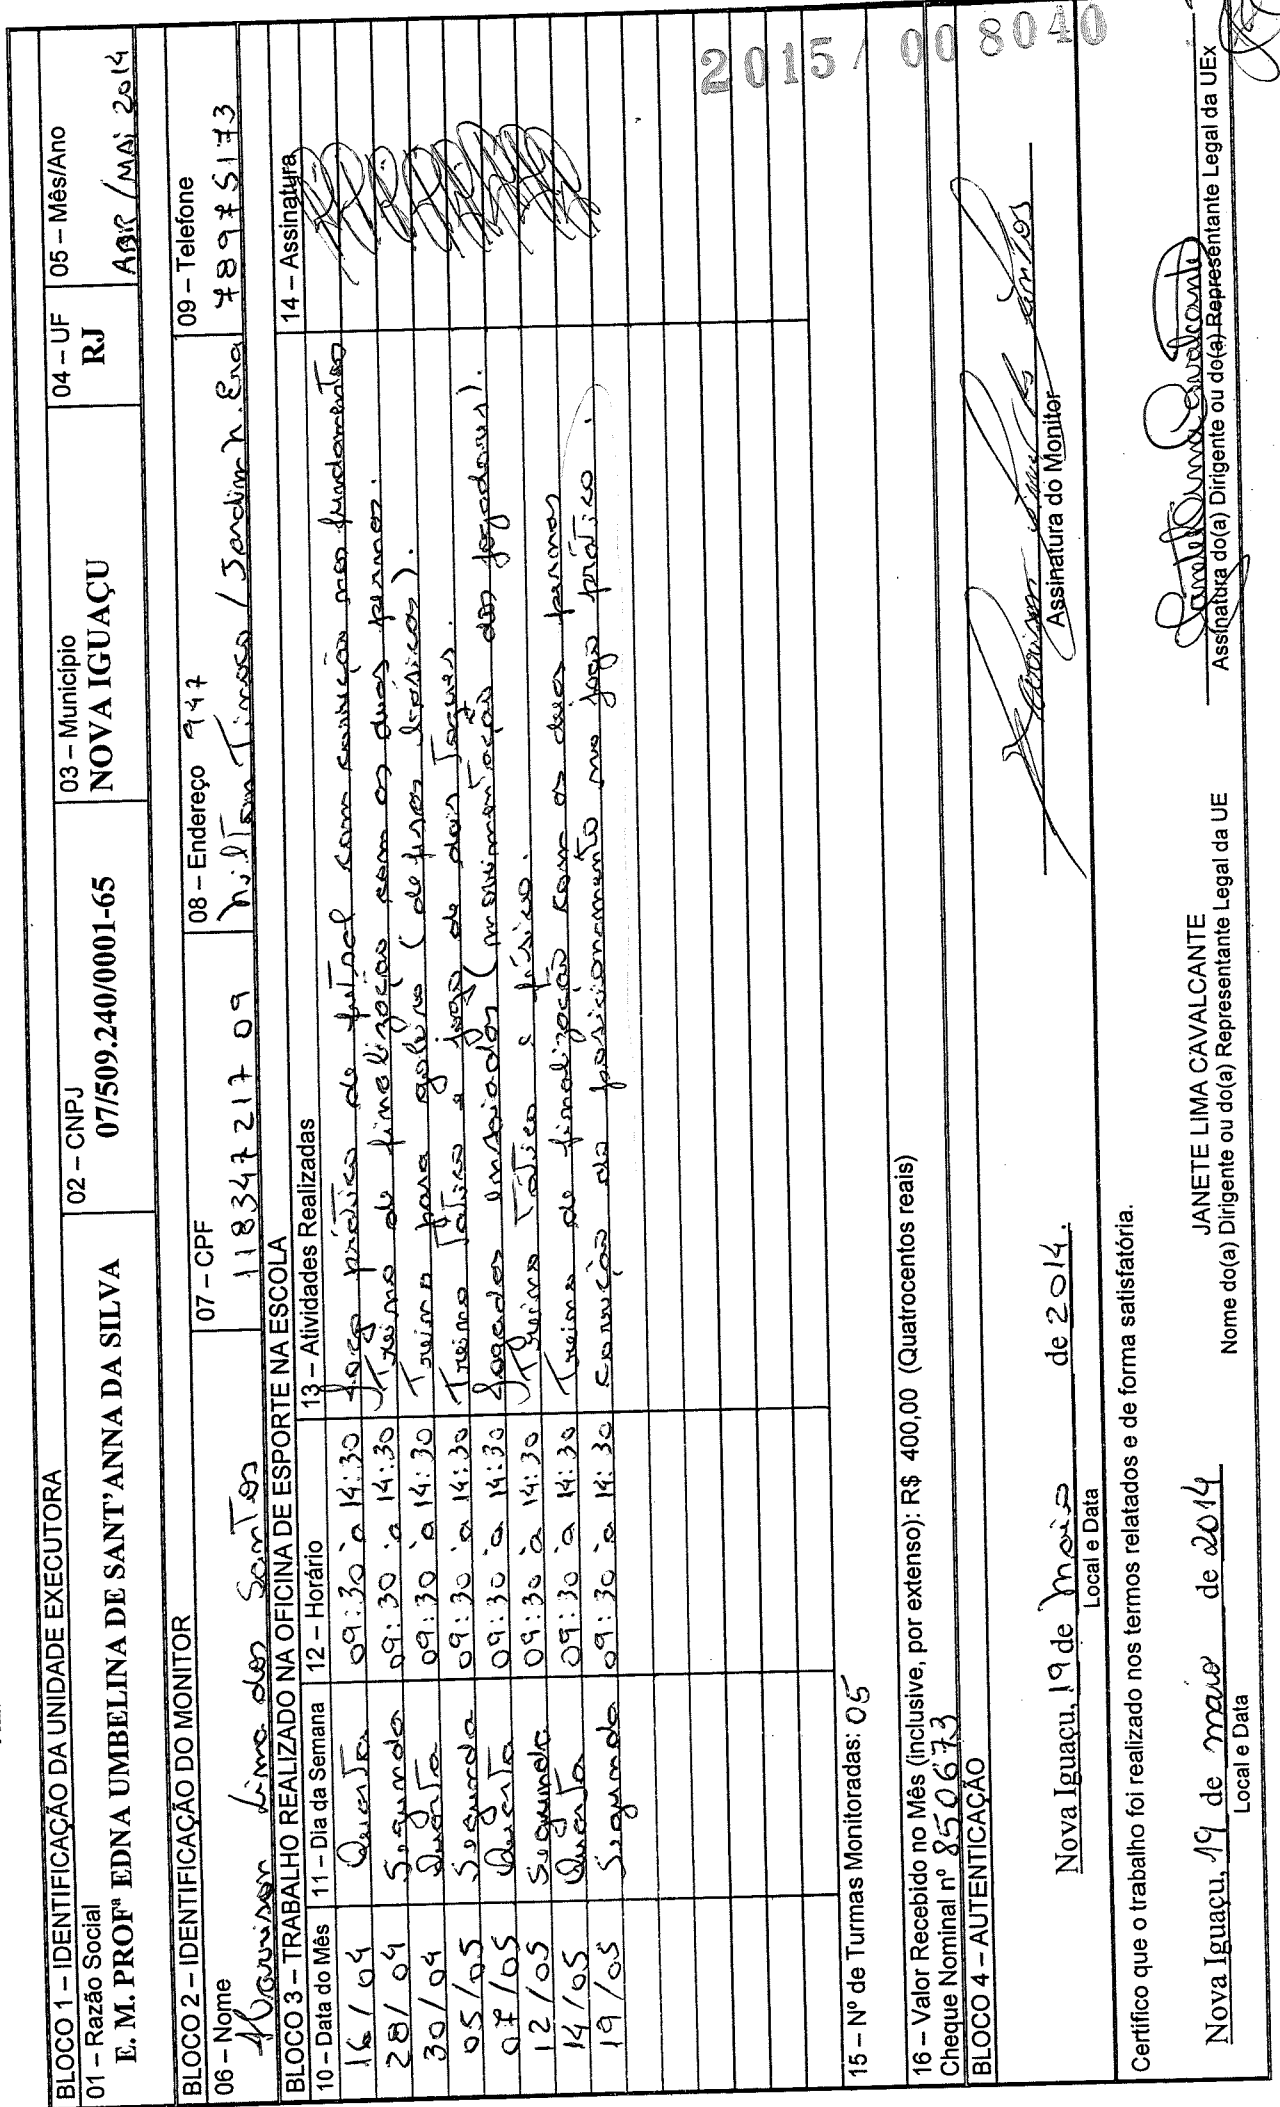 BLOCO 1 – IDENTIFICAÇÃO DA UNIDADE EXECUTORA
01 – Razão Social
E. M. PROFª EDNA UMBELINA DE SANT'ANNA DA SILVA
02 – CNPJ
07/509.240/0001-65
03 – Município
NOVA IGUAÇU
04 – UF
RJ
05 – Mês/Ano
ABR / MAI 2014
BLOCO 2 – IDENTIFICAÇÃO DO MONITOR
06 – Nome
Lima dos Santos
07 – CPF
118347217 09
08 – Endereço 947
Nilton Tinoco / Jardim N. Era
09 – Telefone
78975173
BLOCO 3 – TRABALHO REALIZADO NA OFICINA DE ESPORTE NA ESCOLA
10 – Data do Mês 11 – Dia da Semana 12 – Horário 13 – Atividades Realizadas 14 – Assinatura
16/04 Quarta 09:30 à 14:30 Jogo prático de futsal com correção nos fundamentos
28/04 Segunda 09:30 à 14:30 Treino de finalização com as duas pernas.
30/04 Quarta 09:30 à 14:30 Treino para goleiro (defesas básicas).
05/05 Segunda 09:30 à 14:30 Treino tático e jogo de dois toques.
07/05 Quarta 09:30 à 14:30 Jogadas ensaiadas (movimentação dos jogadores).
12/05 Segunda 09:30 à 14:30 Treino tático e físico.
14/05 Quarta 09:30 à 14:30 Treino de finalização com as duas pernas
19/05 Segunda 09:30 à 14:30 correção do posicionamento no jogo prático.
2015/008040
15 – Nº de Turmas Monitoradas: 05
16 – Valor Recebido no Mês (inclusive, por extenso): R$ 400,00 (Quatrocentos reais)
Cheque Nominal nº 850673
BLOCO 4 – AUTENTICAÇÃO
Nova Iguaçu, 19 de Maio de 2014.
Local e Data
Assinatura do Monitor
Certifico que o trabalho foi realizado nos termos relatados e de forma satisfatória.
Nova Iguaçu, 19 de maio de 2014
Local e Data
JANETE LIMA CAVALCANTE
Nome do(a) Dirigente ou do(a) Representante Legal da UE
Janete Lima Cavalcante
Assinatura do(a) Dirigente ou do(a) Representante Legal da UEx